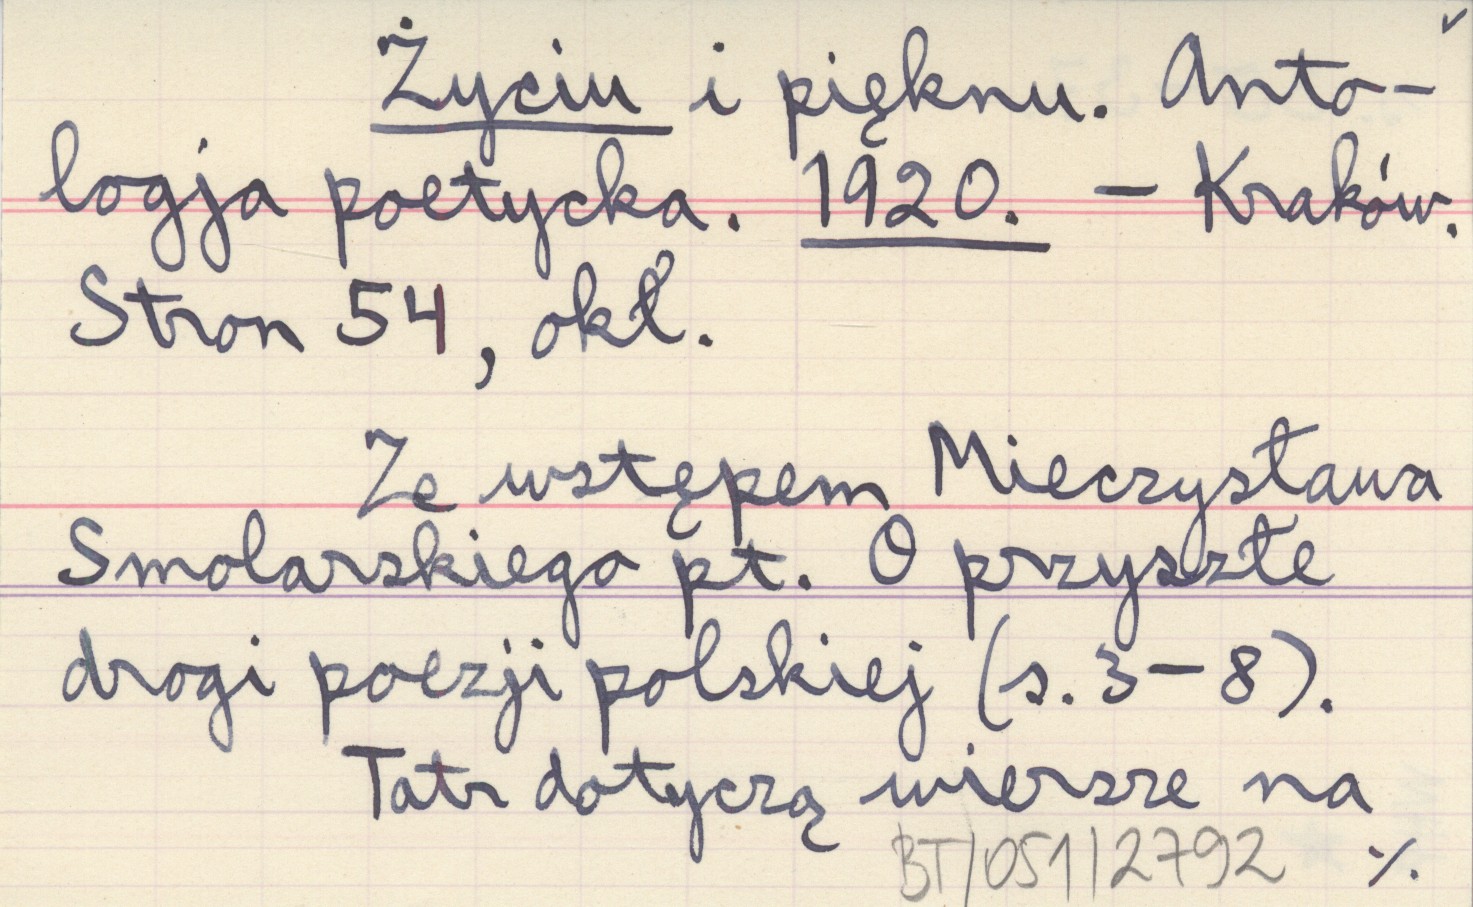 Życiu i pięknu. Anto-
logja poetycka. 1920. – Kraków.
Stron 54, okł.
Ze wstępem Mieczysława
Smolarskiego pt. O przyszłe
drogi poezji polskiej (s. 3–8).
Tatr dotyczą wiersze na
BT/051/2792 ./.